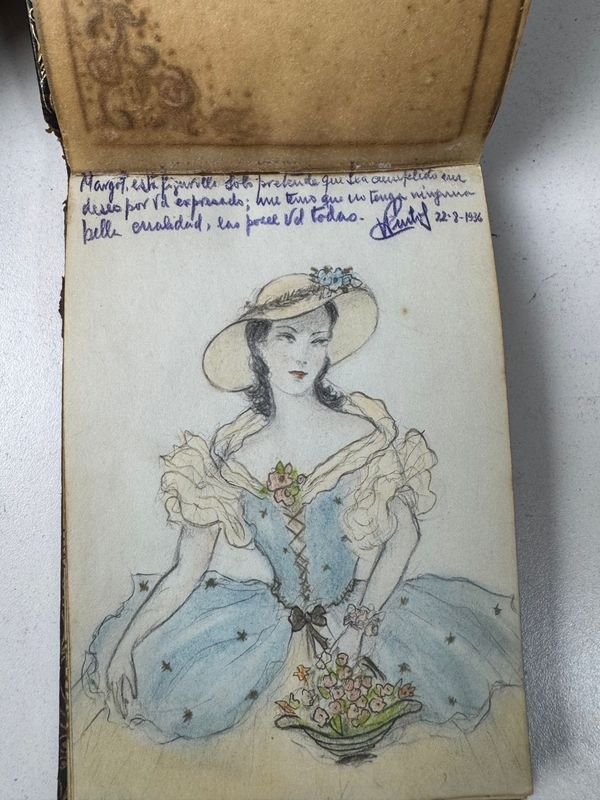 Margot, esta figurilla solo pretende que sea cumplido un
deseo por Vd expresado; me temo que no tenga ninguna
bella cualidad, las posee Vd todas. 22-2-1936